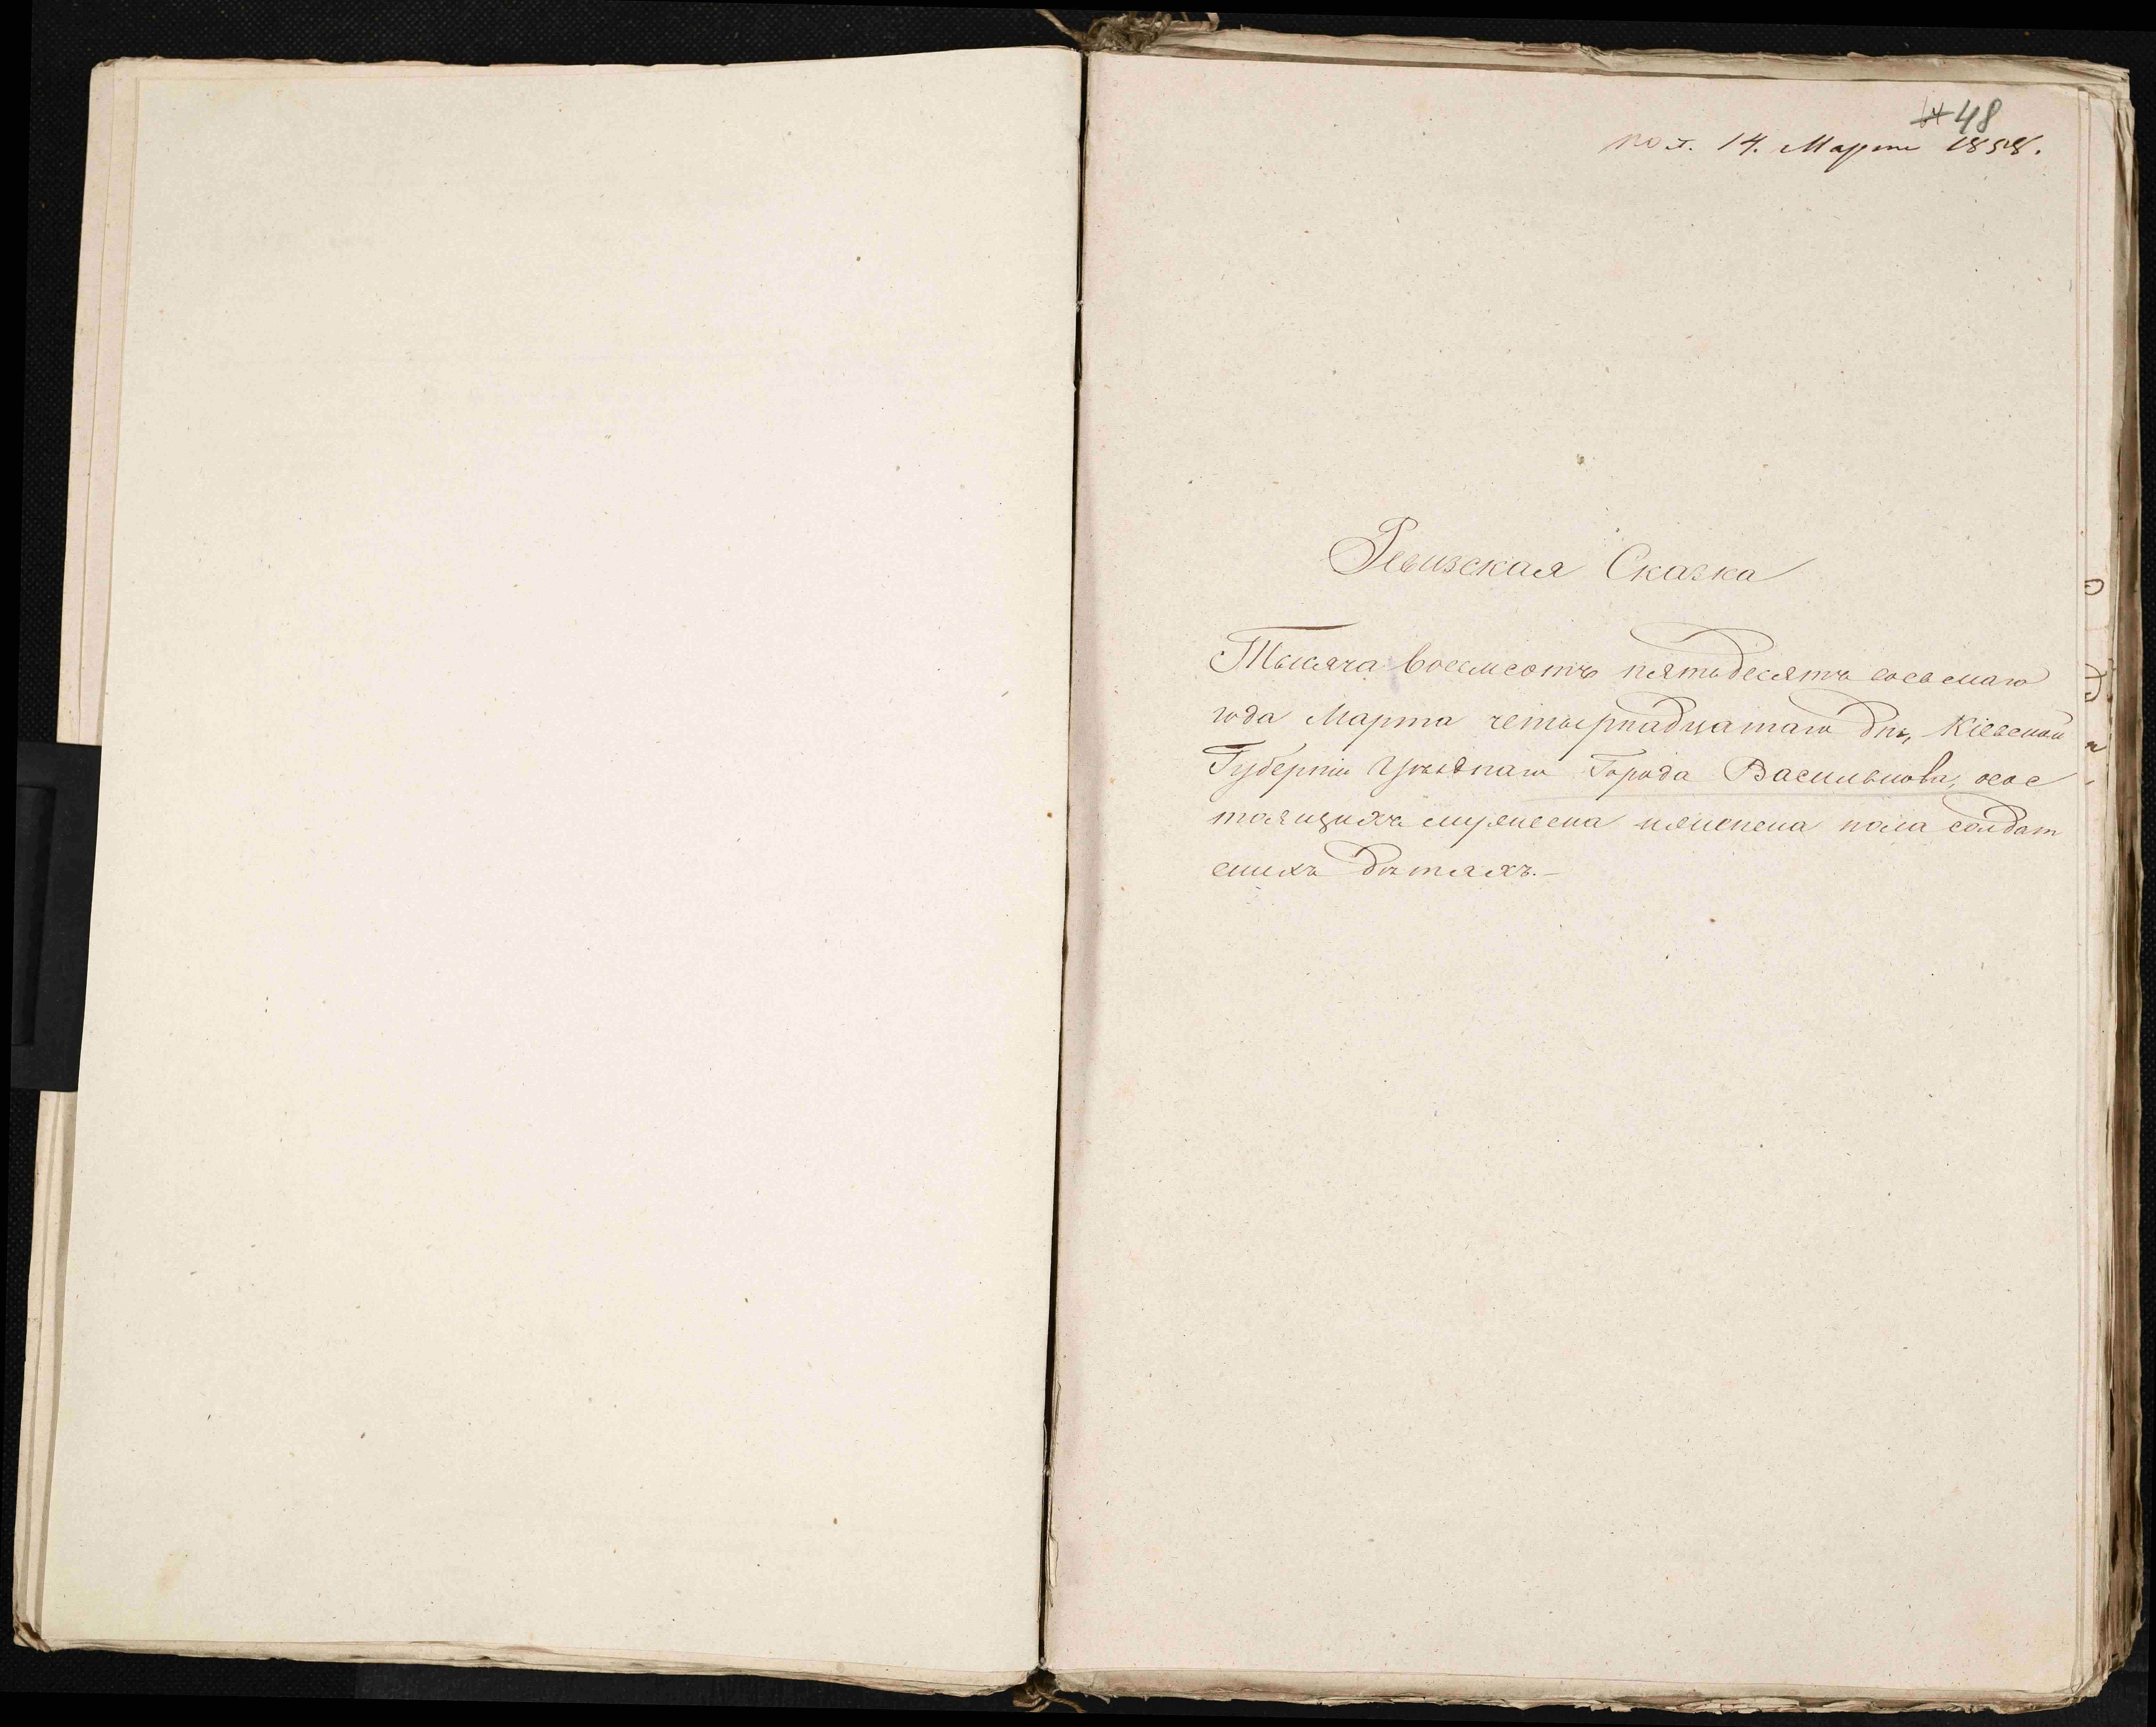 48
пол. 14. Марта 1858.
Ревизская Сказка
Тысяча восемсотъ пятьдесятъ восьмаго
года Марта четырнадцатаго дня, Кіевской
Губерніи Уѣзднаго Города Василькова, осос
тоящихъ мужеска иженска пола солдат
скихъ дѣтяхъ.—